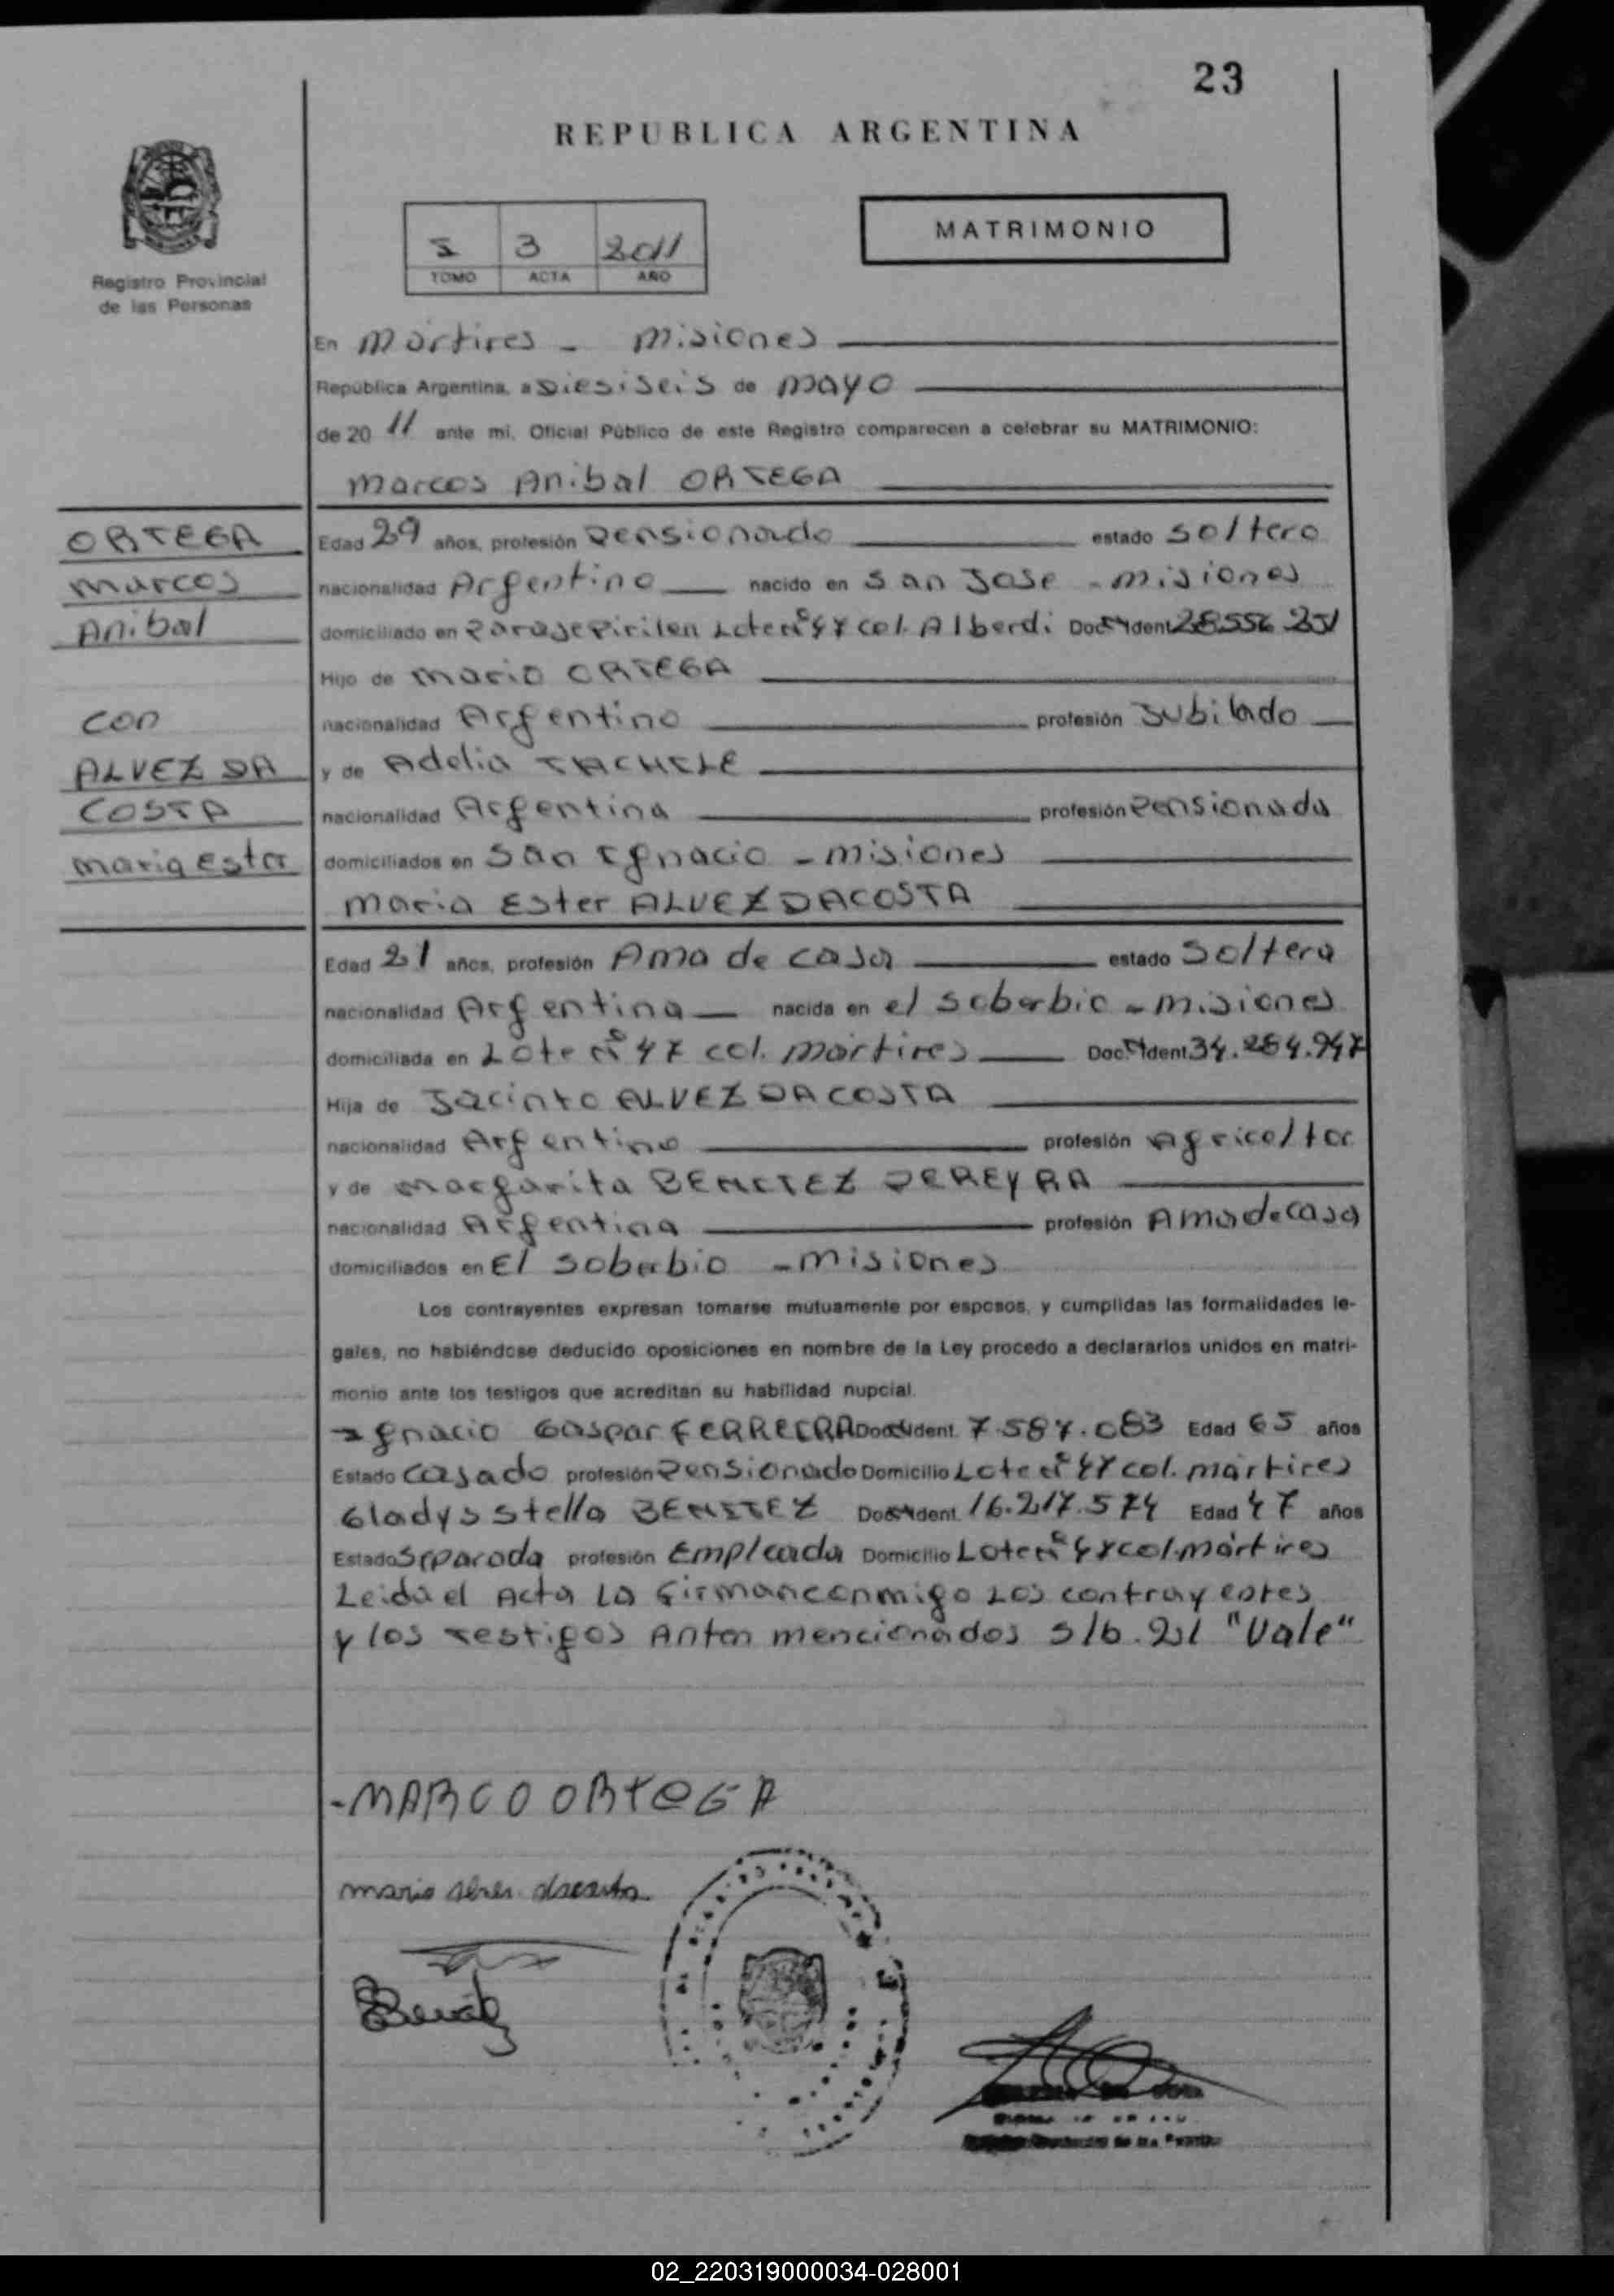 23
REPUBLICA ARGENTINA
I 3 2011
TOMO ACTA AÑO
MATRIMONIO
Registro Provincial
de las Personas
En Mártires - Misiones
República Argentina, a Diesiseis de mayo
de 20 11 ante mi, Oficial Público de este Registro comparecen a celebrar su MATRIMONIO:
Marcos Anibal ORTEGA
ORTEGA
Marcos
Anibal
con
ALVEZ DA
COSTA
Maria Ester
Edad 29 años, profesión Pensionado estado Soltero
nacionalidad Argentino nacido en San Jose - Misiones
domiciliado en Lote nº 47 col. Alberdi Doc. Ident 28.556.251
Hijo de Mario ORTEGA
nacionalidad Argentino profesión Jubilado
y de Adelia
nacionalidad Argentina profesión Pensionada
domiciliados en San Ignacio - Misiones
Maria Ester ALVEZ DA COSTA
Edad 21 años, profesión Ama de casa estado Soltera
nacionalidad Argentina nacida en el Soberbio - Misiones
domiciliada en Lote nº 47 col. Mártires Doc. Ident 34.264.947
Hija de Jacinto ALVEZ DA COSTA
nacionalidad Argentino profesión Agricoltor
y de Margarita BENITEZ PEREYRA
nacionalidad Argentina profesión Ama de casa
domiciliados en El Soberbio - Misiones
Los contrayentes expresan tomarse mutuamente por esposos, y cumplidas las formalidades le-
gales, no habiéndose deducido oposiciones en nombre de la Ley procedo a declararlos unidos en matri-
monio ante los testigos que acreditan su habilidad nupcial.
Ignacio Gaspar FERREIRA Doc. Ident. 7.587.083 Edad 65 años
Estado Casado profesión Pensionado Domicilio Lote nº 47 col. Mártires
Gladys Stella BENITEZ Doc. Ident. 16.217.574 Edad 47 años
Estado Separada profesión Empleada Domicilio Lote nº 47 col. Mártires
Leida el Acta La firman conmigo Los contrayentes
y los Testigos Antes mencionados s/b. 251 "Vale"
-MARCO ORTEGA
02_220319000034-028001